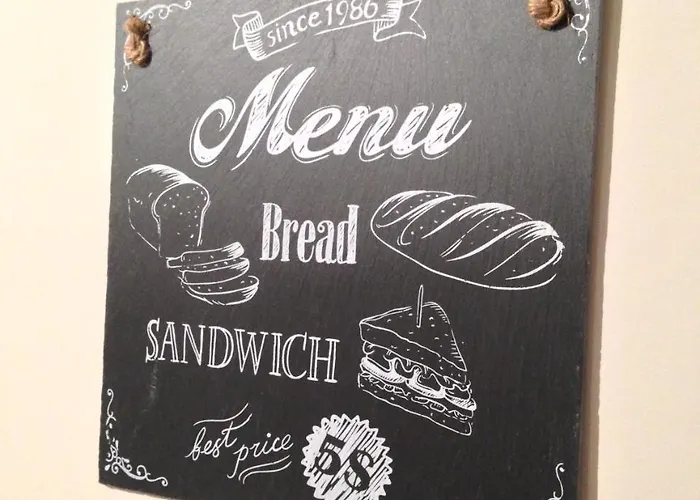 since 1986
Menu
Bread
SANDWICH
best price
5$